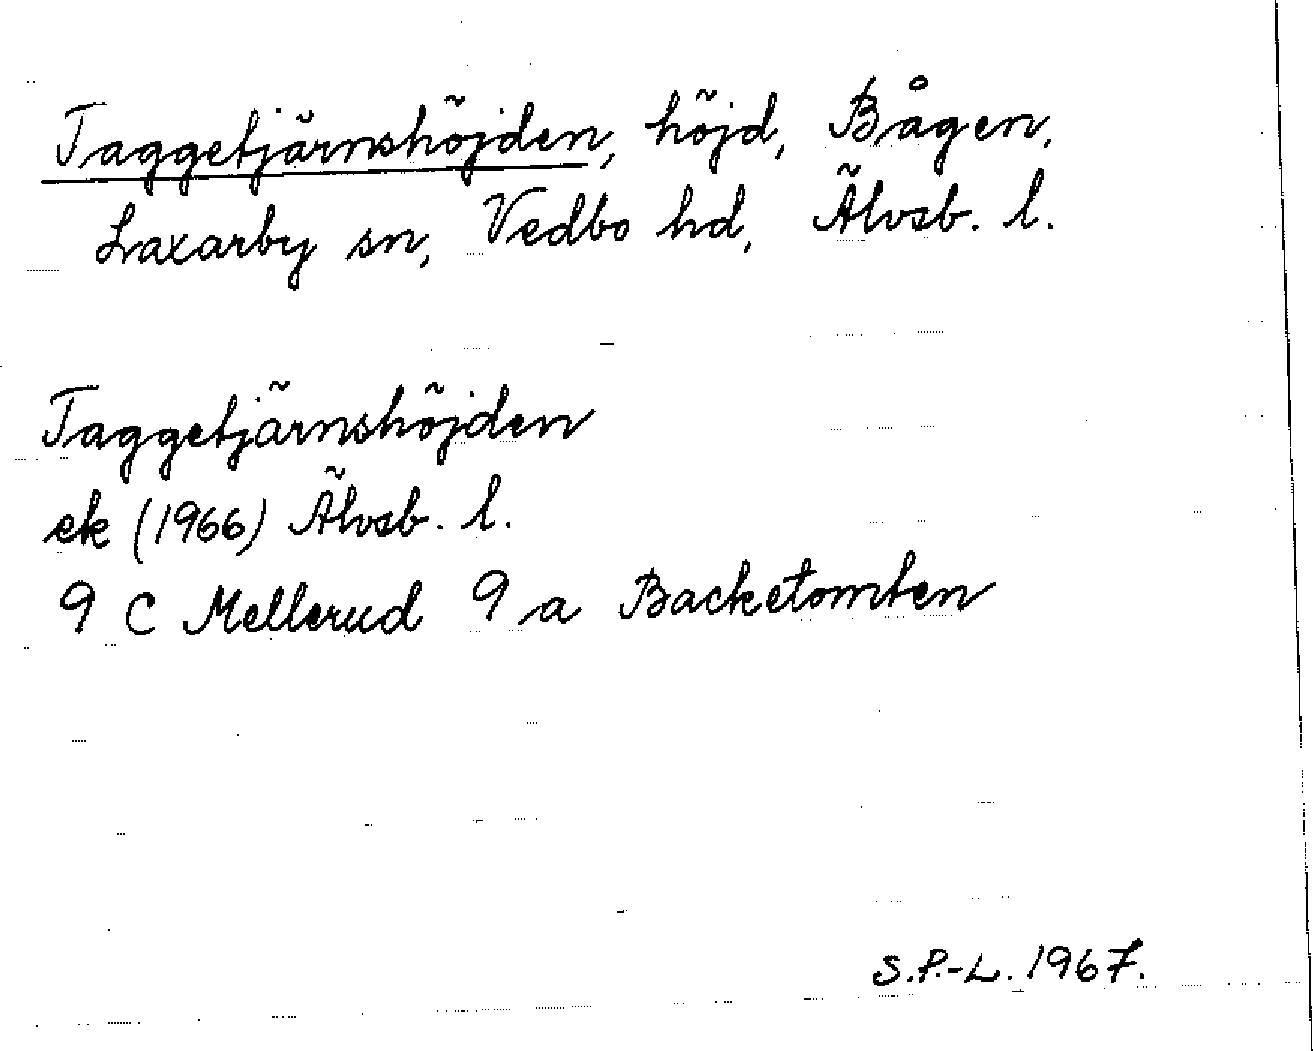 Taggetjärnshöjden, höjd, Bågen,
Laxarby sn, Vedbo hd, Älvsb. l.
Taggetjärnshöjden
ek (1966) Älvsb. l.
9 C Mellerud 9 a Backetomten
S.P.-L. 1967.